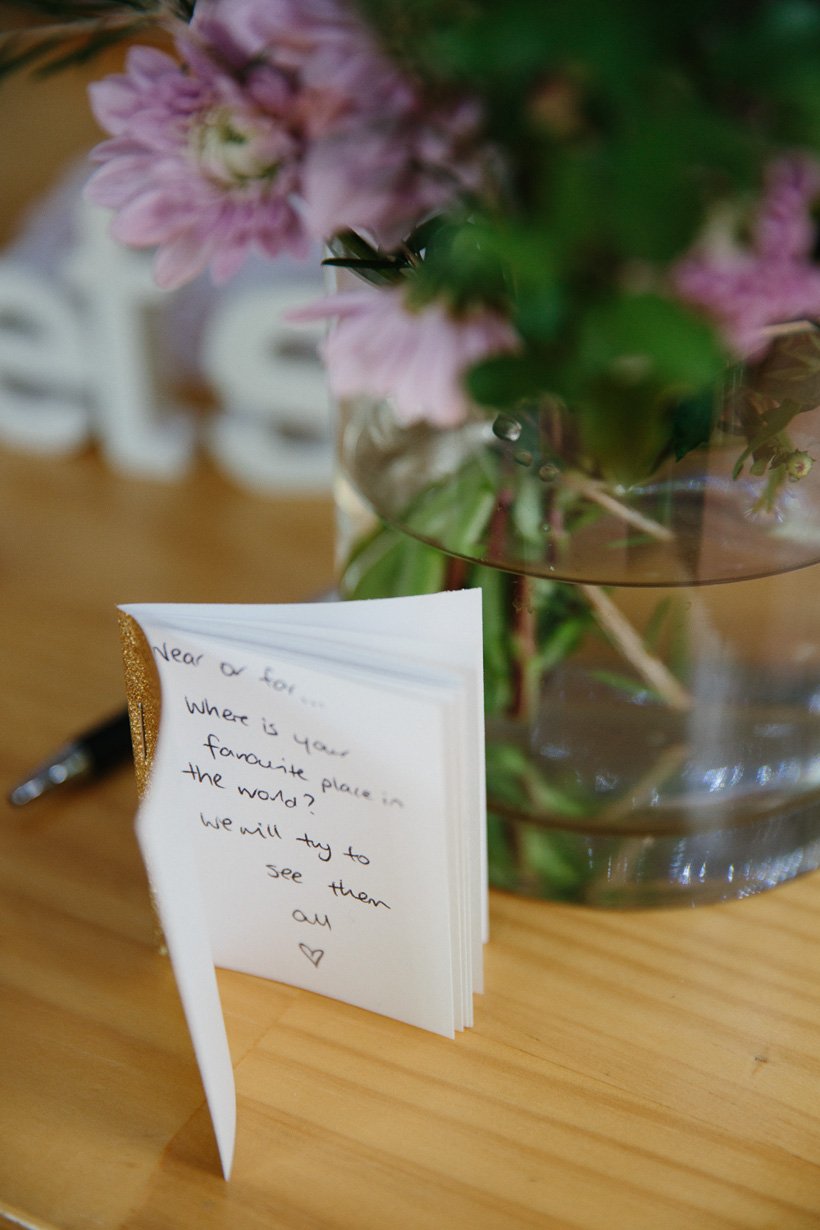 ets
Near or far...
Where is your
favourite place in
the world?
We will try to
see them
all